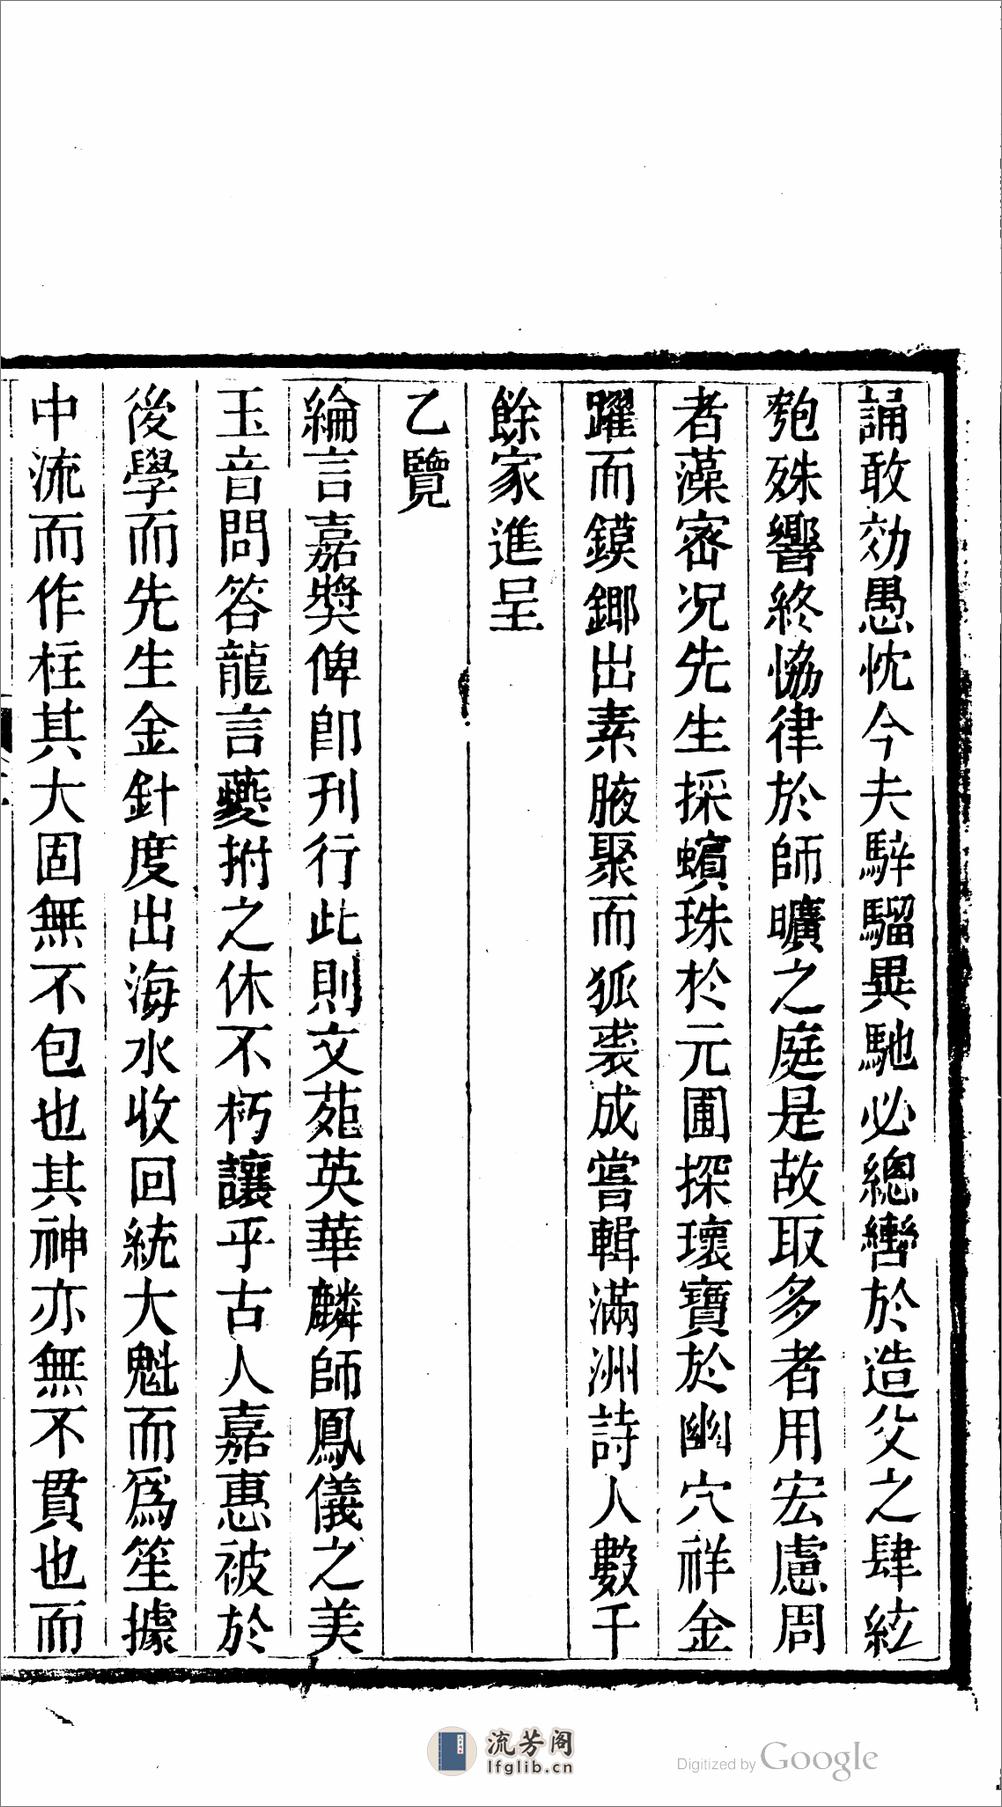 誦敢効愚忱今夫騂騮異馳必總轡於造父之肆絃
匏殊響終恊律於師曠之庭是故取多者用宏慮周
者藻密况先生採蠙珠於元圃探瓌寶於幽穴祥金
躍而鏌鎁出素腋聚而狐裘成嘗輯滿洲詩人數千
餘家進呈
乙覽
綸言嘉奬俾卽刊行此則文苑英華麟師鳳儀之美
玉音問答龍言夔拊之休不朽讓乎古人嘉惠被於
後學而先生金針度出海水收回統大魁而爲笙據
中流而作柱其大固無不包也其神亦無不貫也而
流芳阁
lfglib.cn
Digitized by Google